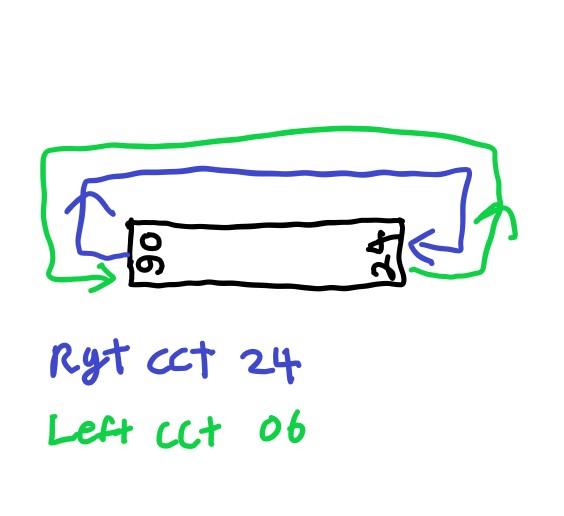 06
24
Rgt cct 24
Left cct 06